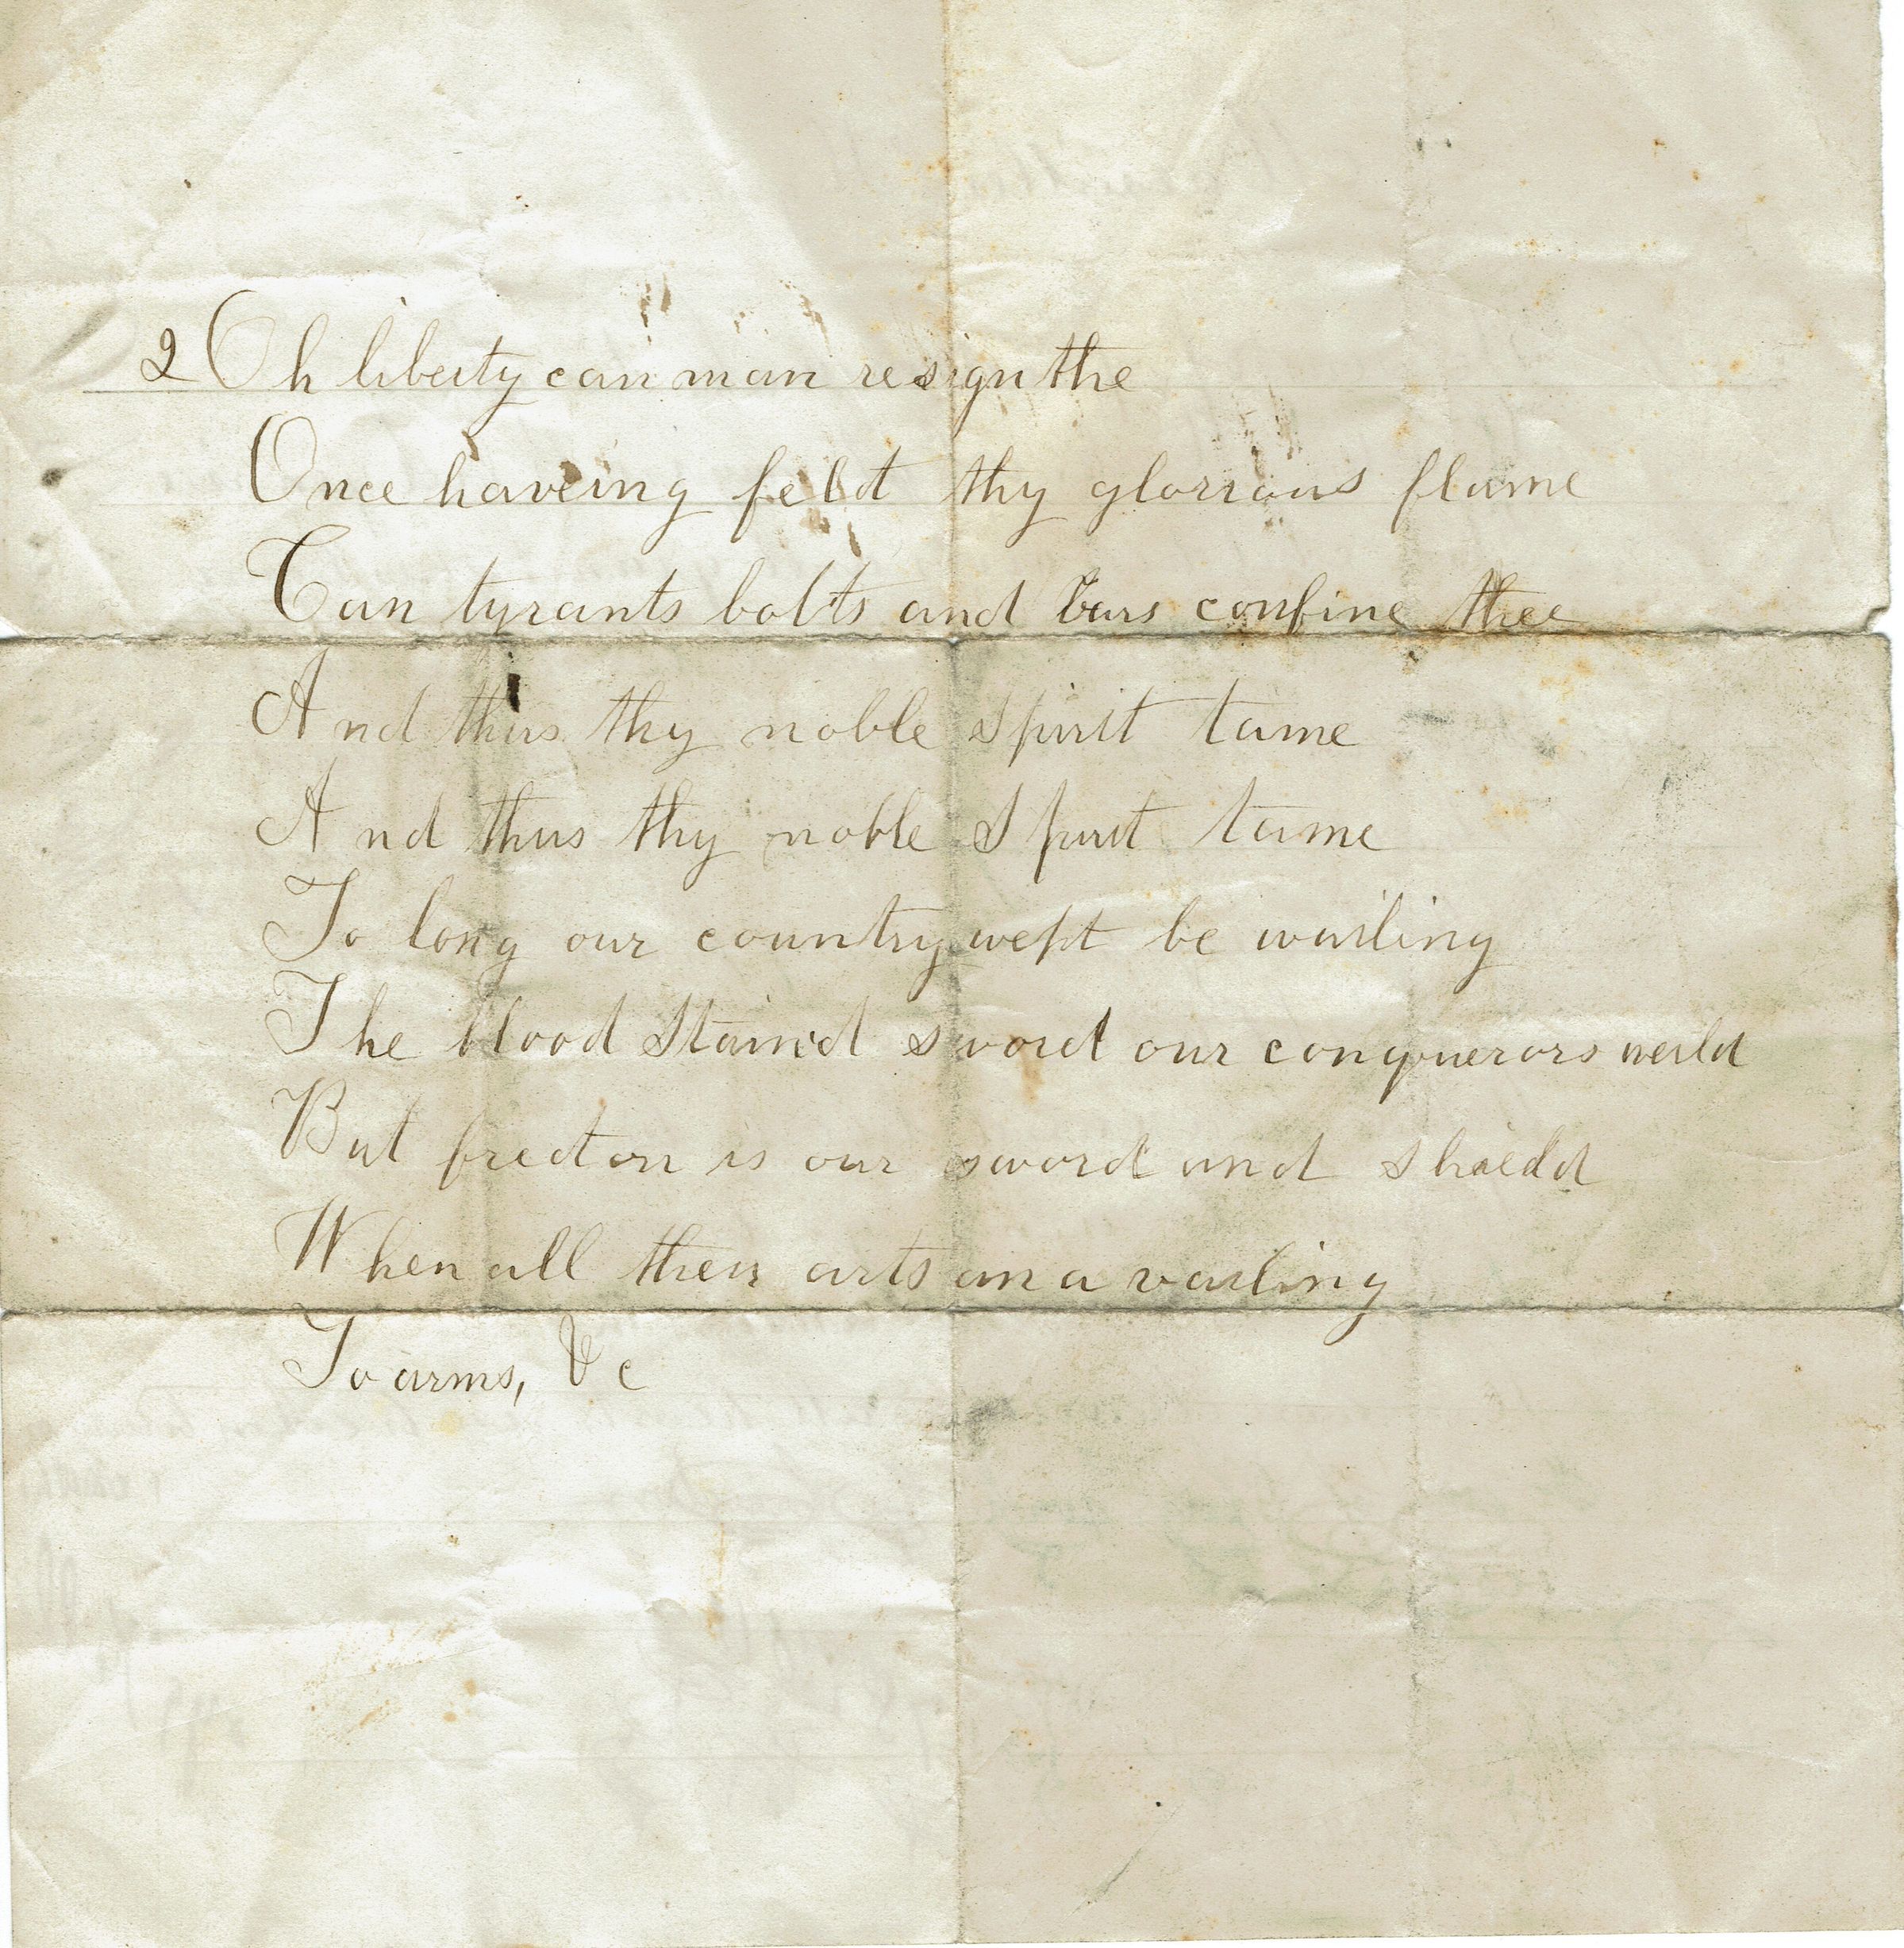 2 Oh liberty can man resign the
Once haveing feldt thy glorious flame
Can tyrants bolts and bars confine thee
And thus thy noble spirit tame
And thus thy noble spirit tame
To long our country wept be wailing
The blood stained sword our conquerors weild
But fredton is our sword and shield
When all their arts un a vailing
To arms, &c